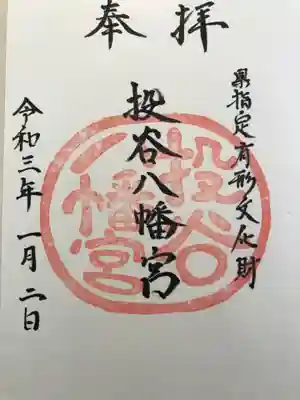 奉拝
県指定有形文化財
投谷八幡宮
投谷
八幡宮
令和三年一月二日